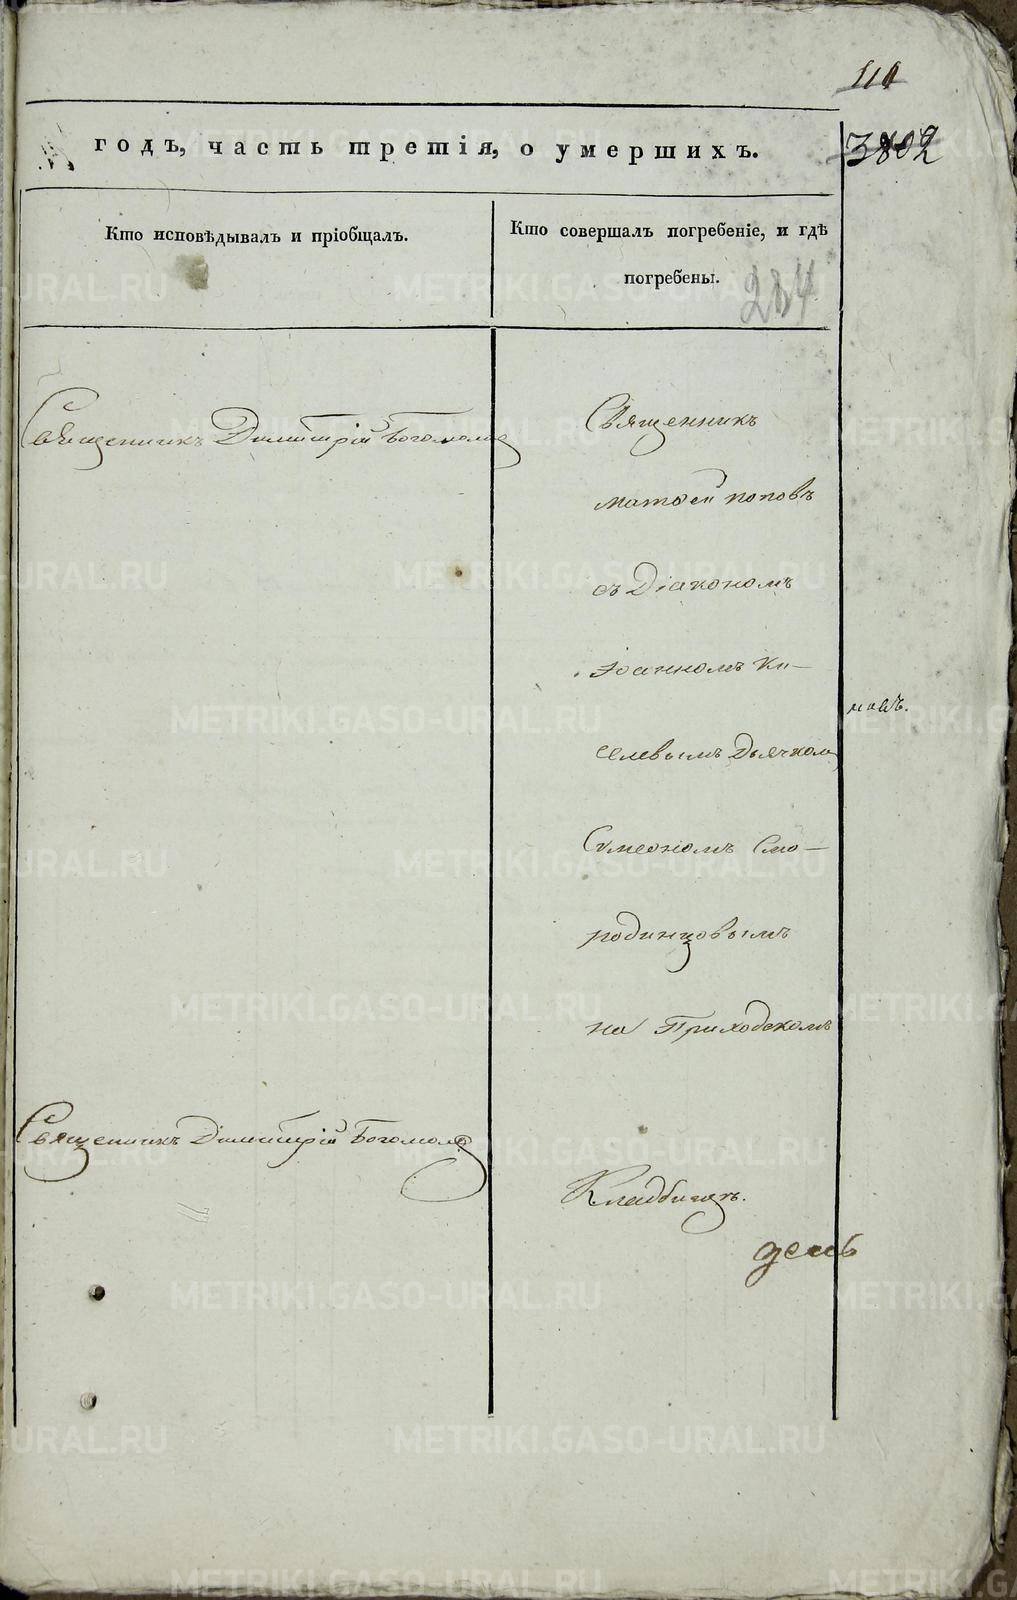 годъ, часть третія, о умершихъ.
3802
Кто исповѣдывалъ и пріобщалъ.
Кто совершалъ погребеніе, и гдѣ
погребены.
284
Священникъ Димитрій Богомолов
Священникъ
Матѳей Поповъ
съ Діакономъ
Іоанномъ Ки-
селевымъ Дьячком
Сѵмеономъ Смо-
родинцовымъ
на Приходскомъ
Священникъ Димитрій Богомолов
Кладбищѣ.
METRIKI.GASO-URAL.RU